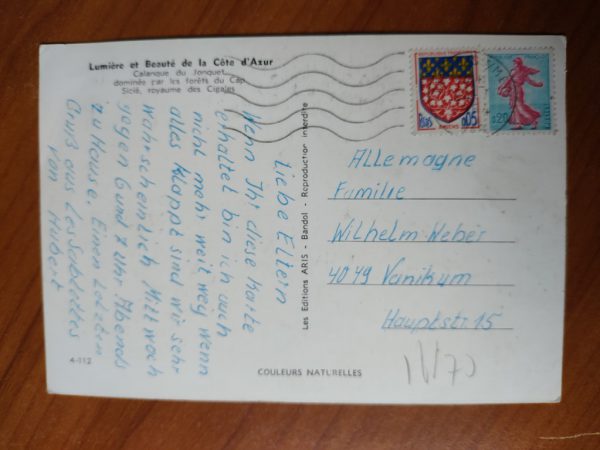 Lumière et Beauté de la Côte d'Azur
Calanque du Jonquet
dominée par les forêts du Cap
Sicié, royaume des Cigales
Liebe Eltern
Wenn Ihr diese Karte
erhaltet bin ich auch
nicht mehr weit weg wenn
alles klappt sind wir sehr
wahrscheinlich Mittwoch
gegen 6 und 7 Uhr Abends
zu Hause. Einen letzten
Gruß aus Les Sablettes
von Hubert
Les Editions ARIS - Bandol - Reproduction interdite
REPUBLIQUE FRANÇAISE
POSTES
0,05
AMIENS
0,20
Allemagne
Familie
Wilhelm Weber
4049 Vanikum
Hauptstr. 15
A-112
COULEURS NATURELLES